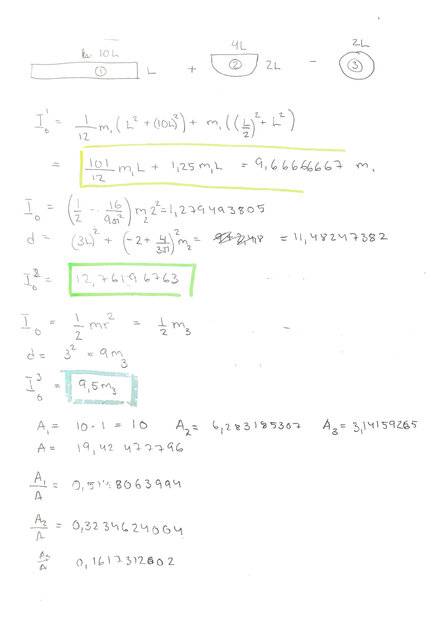 10L 4L 2L
① L + ② 2L - ③
I₀¹ = 1/12 m₁ (L² + (10L)²) + m₁ ((L/2)² + L²)
= 101/12 m₁L + 1,25 m₁L = 9,66666667 m₁
I₀ = (1/2 - 16/9π²) m₂ 2² = 1,279493805
d = (3L)² + (-2 + 4/3π)² m₂ = = 11,48247382
I₀² = 12,76196763
I₀ = 1/2 mr² = 1/2 m₃
d = 3² = 9m₃
I₀³ = 9,5m₃
A₁ = 10 · 1 = 10 A₂ = 6,283185307 A₃ = 3,14159265
A = 19,42477796
A₁/A = 0,5148063944
A₂/A = 0,3234624004
0,1617312002